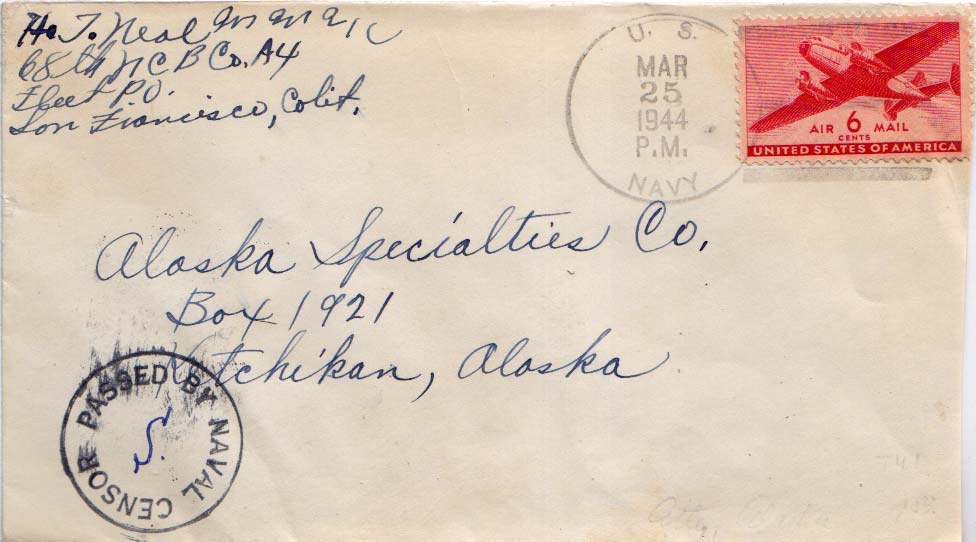 T. Neal M M 2/C
68th N C B Co. A4
Fleet P.O.
San Francisco, Calif.
U. S.
MAR
25
1944
P.M.
NAVY
AIR 6 MAIL
CENTS
UNITED STATES OF AMERICA
Alaska Specialties Co.
Box 1921
Ketchikan, Alaska
PASSED BY NAVAL CENSOR
S.